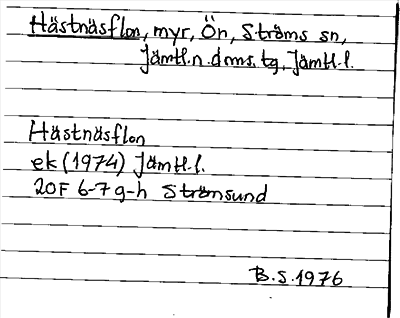 Hästnäsflon, myr, Ön, Ströms sn,
Jämtl.n.doms.tg, Jämtl.l.
Hästnäsflon
ek (1974) Jämtl.l.
20F 6-7 g-h Strömsund
B.S.1976